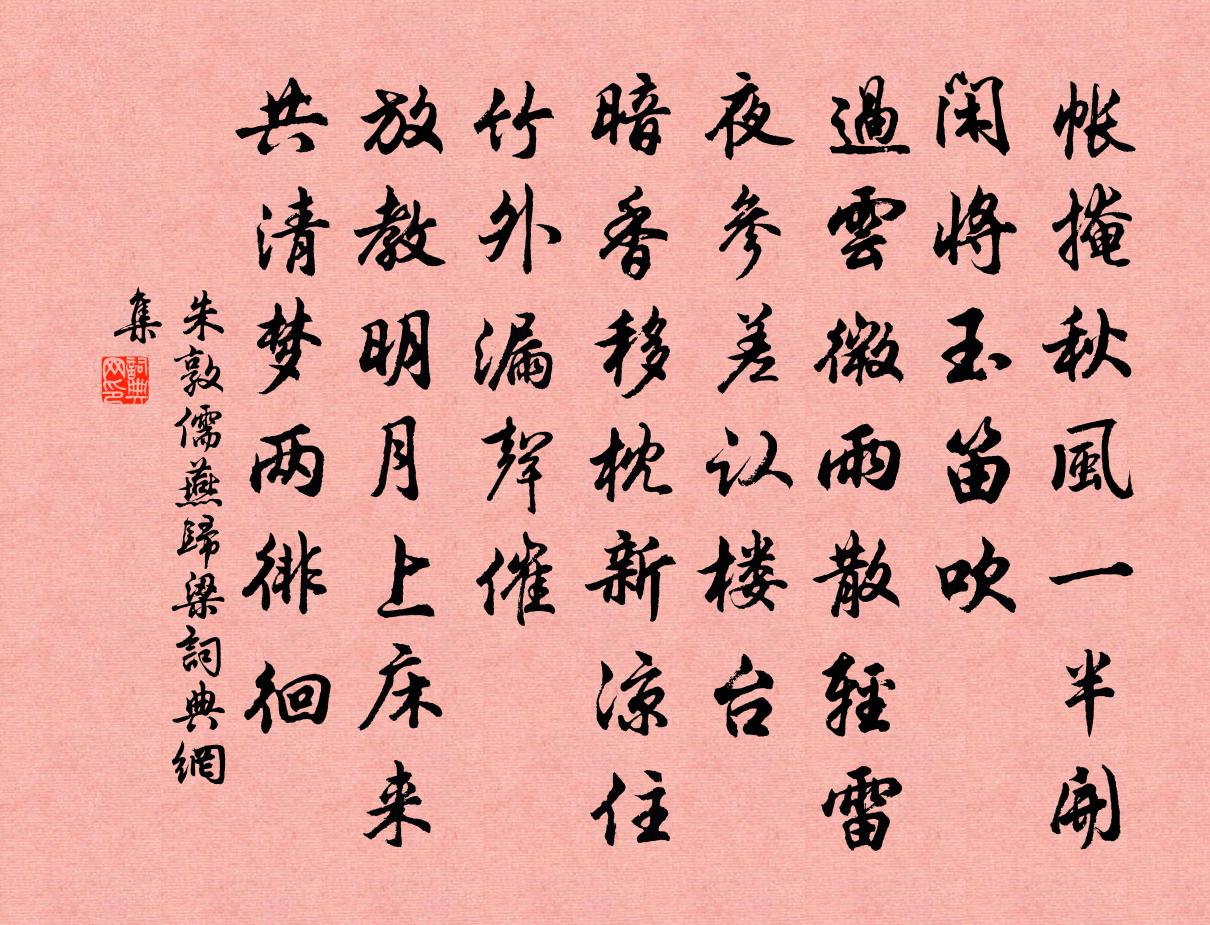 帐掩秋風一半開
闲将玉笛吹
過雲微雨散輕雷
夜參差认楼台
暗香移枕新涼住
竹外漏聲催
放教明月上床来
共清梦两徘徊
朱敦儒燕歸梁詞典網
集
詞典
网印